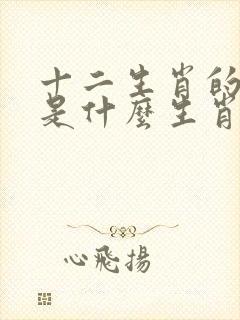 十二生肖的
是什麼生肖
心飛揚